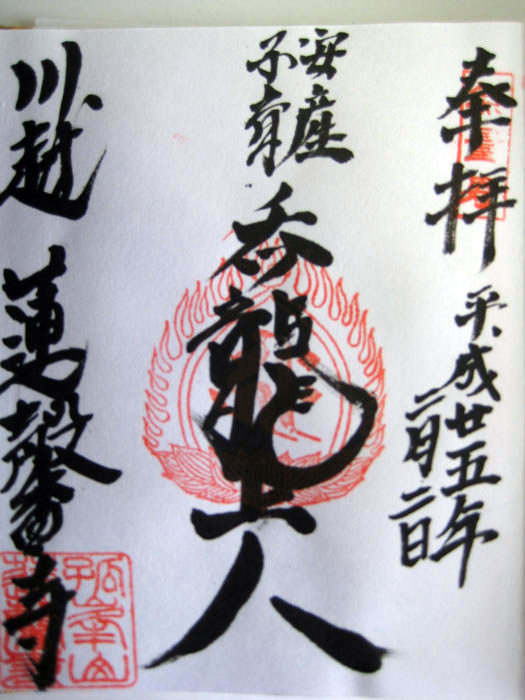 奉拝
平成廿五年
二月二日
安産
子育
呑龍上人
川越
蓮馨寺
孤峯山